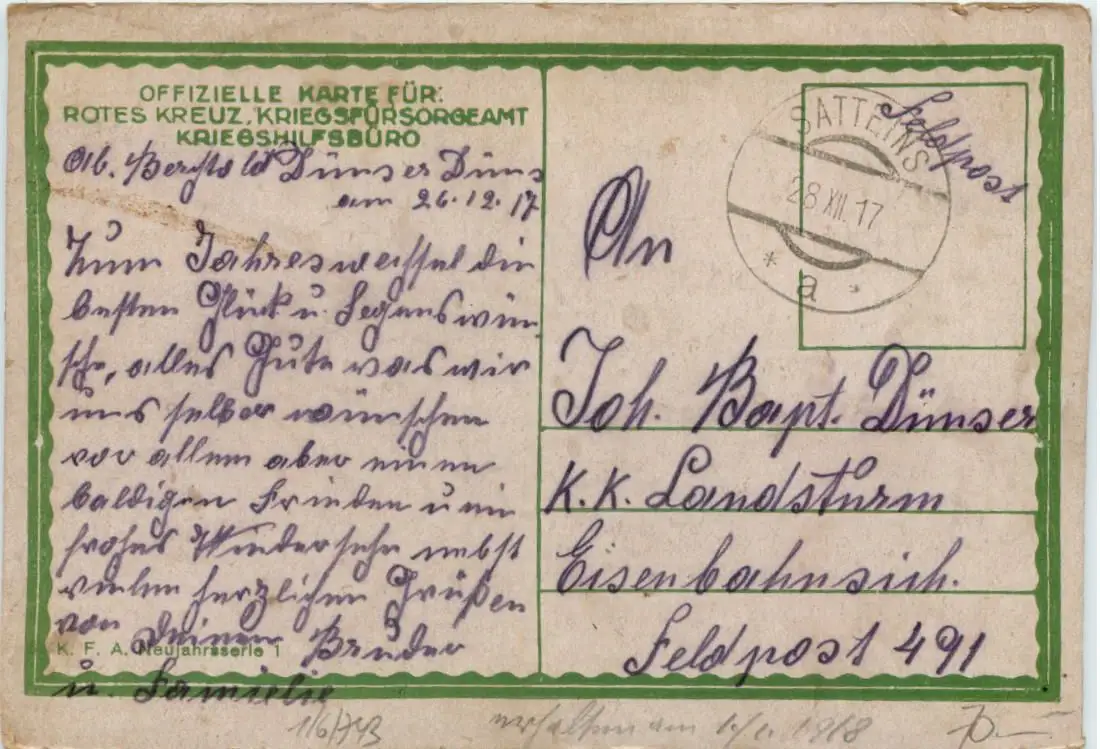 OFFIZIELLE KARTE FÜR:
ROTES KREUZ, KRIEGSFÜRSORGEAMT
KRIEGSHILFSBÜRO
Ab. Berchtold Dünser Düns
am 26.12.17
Zum Jahreswechsel die
besten Glück u. Segenswün
sche, alles Gute was wir
uns selber wünschen
vor allem aber einen
baldigen Frieden u ein
frohes Wiedersehn nebst
vielen herzlichen Grüßen
von Deinem Bruder
u. Familie
K. F. A. Neujahrsserie 1
Feldpost
SATTEINS
28 XII. 17
* a
An
Joh. Bapt. Dünser
K.K. Landsturm
Eisenbahnsich.
Feldpost 491
116/743
erhalten am 1918